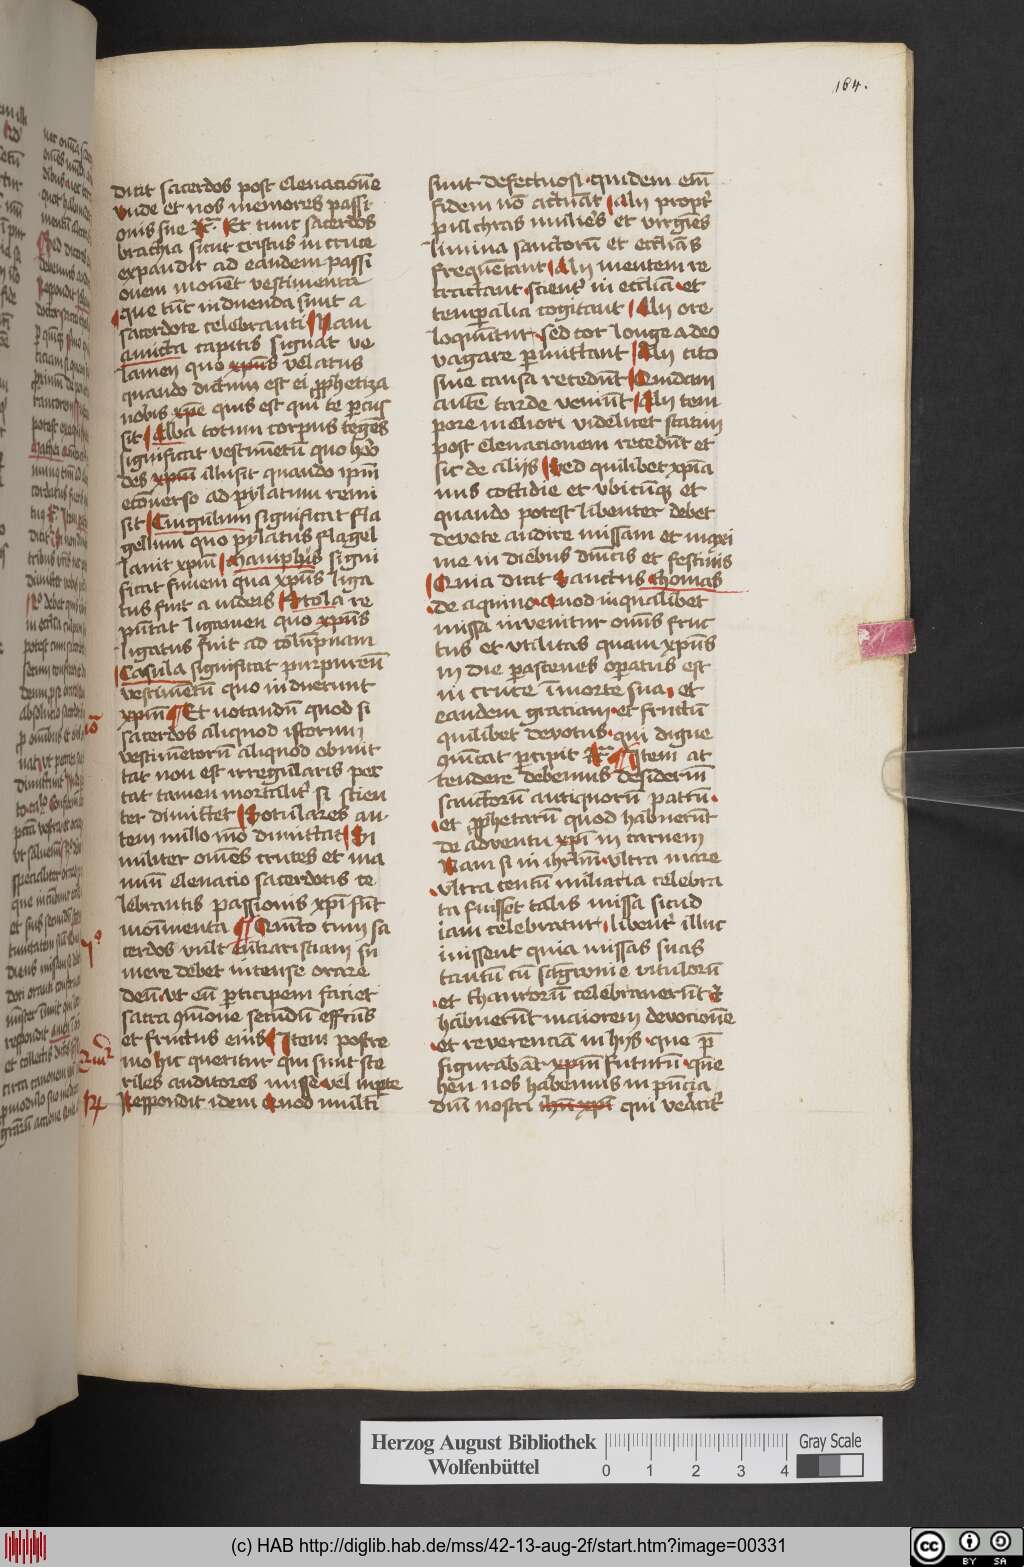 164.
dicit sacerdos post elenacionē
vnde et nos memores passi
onis sue rͨ. Et tunc sacerdos
brachia sicut cristus in cruce
expandit ad eandem passi
onem monēt vestimenta
que tūt induenda sunt a
sacerdote celebranti Nam
amicta capitis signat ve
lamen quo xpūs velatus
quando dictum est ei ꝓphetiza
nobis xpē quis est qui te ꝑcus
sit Alba totum corpus tegēs
significat vestimētū quo hero
des xpm̄ illusit quando ipm̄
econuerso ad pylatum remi
sit Cingulum significat fla
gellum quo pylatus flagel
lauit xpm̄ signi
ficat funem qua xpūs liga
tus fuit a iudeis Stola re
pn̄tat ligamen quo xpūs
ligatus fuit ad colūpnam
Casula significat purpureū
vestimētū quo induerunt
xpm̄ Et notandū quod si
sacerdos aliquod istorum
vestimētorū aliquod obmit
tat non est irregularis pec
cat tamen mortalit̓ si scien
ter dimittet Sotulares au-
tem nullo mō dimittat Si
militer om̄es cruces et ma
nuū elenacio sacerdotis ce
lebrantis passionis xpī sūt
monumenta Quīto cum sa
cerdos vult eukaristiam su
mere debet intense orare
deū vt eū ꝑticipem faciet
sacra secūdū effcūs
et fructus eius Item postre
mo hic queritur qui sunt ste
riles auditores misse vel
Respondit idem Quod multi
sunt defectuosi quidem em̄
fidem nō actuāt Alij propt̓
pulchras mulieēs et virgiēs
limina sanctorū et eccliās
frequētant Alij mentem re
tractant scient̓ in ecclīa et
temporalia cogitant Alij ore
loquūtur sed cor longe adeo
vagare ꝑmittant Alij cito
sine causa recedūt Quidam
autē tarde veniūt Alij tem
pore meliori videlicet statim
post elenacionem recedūt et
sic de alijs Sed quilibet xpīa
nus cottidie et vbicūqꝫ et
quando potest libenter debet
devote audire missam et maxi
me in diebus dn̄icis et festiuis
Quia dicit Sanctus thomas
de aquino quod in qualibet
missa invenitur om̄is fruc
tus et vtilitas quam xpūs
in die pascēues oꝑatus est
in cruce ī morte sua et
eandem graciam et fructū
quilibet devotus qui digne
ꝑcipit rͨ. Item at
tendere debemus desideriū
sanctorū antiquorū patrū
et ꝓphetarū quod habuerūt
de adventu xpī in carnem
Nam si in ihrl̄m vltra mare
vltra centū miliaria celebra
ta fuisset talis missa sicud
iam celebratur libent̓ illuc
iuissent quia missas suas
tantū cū sāgwine vitulorū
et hircorū celebrauerūt et
habuerūt maiorem devocionē
et reverenciā in hijs que p̄
figurabāt xpm̄ futurū que
heu nos habemus in pn̄cia
dn̄i nostri ihū xpī qui veracit̓
Herzog August Bibliothek
Wolfenbüttel
0 1 2 3 4
Gray Scale
(c) HAB http://diglib.hab.de/mss/42-13-aug-2f/start.htm?image=00331
cc BY SA